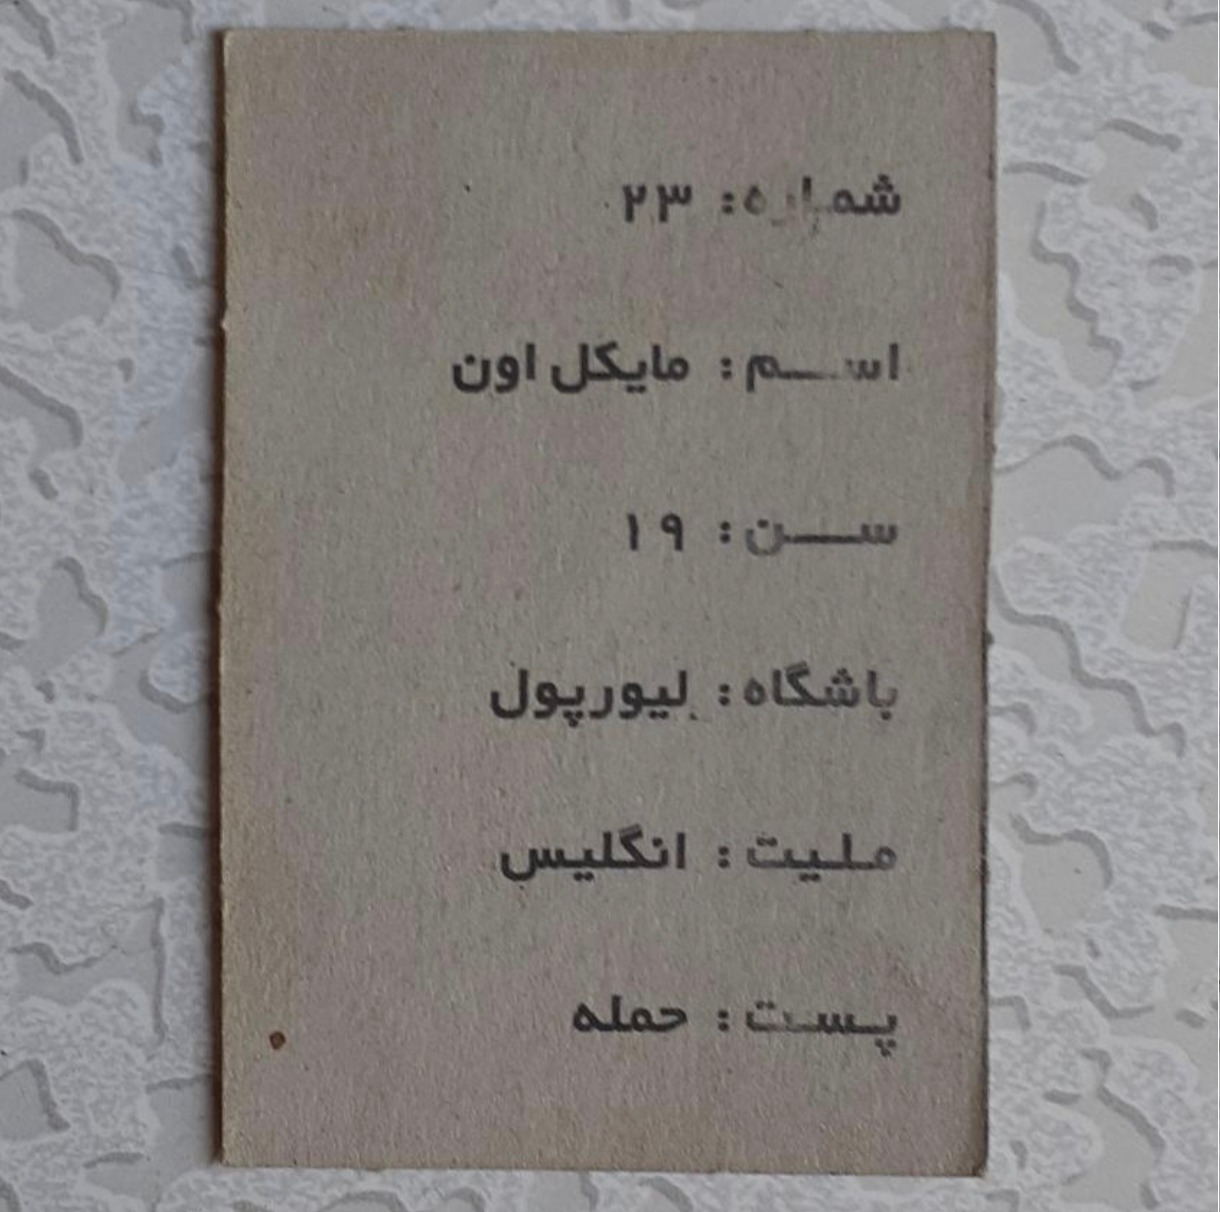 شماره: ۲۳
اسم: مایکل اون
سن: ۱۹
باشگاه: لیورپول
ملیت: انگلیس
پست: حمله